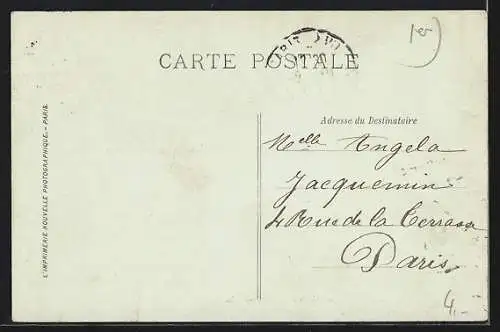 CARTE POSTALE
Adresse du Destinataire
Melle Angela
Jacquemin
4 Rue de la Terrasse
Paris
4.
L'IMPRIMERIE NOUVELLE PHOTOGRAPHIQUE. - PARIS.